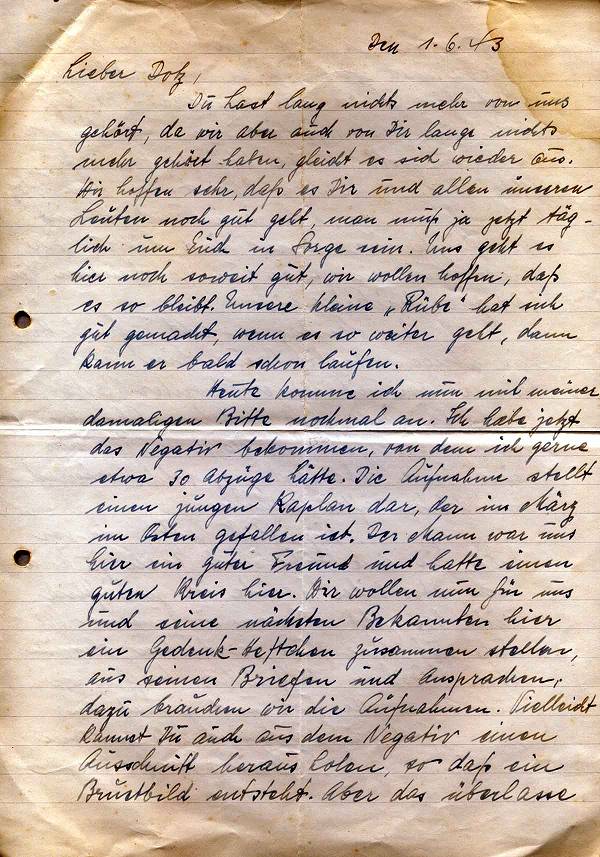 Den 1.6.43
Lieber Dolz,
Du hast lang nichts mehr von uns
gehört, da wir aber auch von Dir lange nichts
mehr gehört haben, gleicht es sich wieder aus.
Wir hoffen sehr, daß es Dir und allen unseren
Leuten noch gut geht, man muß ja jetzt täg-
lich um Euch in Sorge sein. Uns geht es
hier noch soweit gut, wir wollen hoffen, daß
es so bleibt. Unsere kleine „Rübe“ hat sich
gut gemacht, wenn es so weiter geht, dann
kann er bald schon laufen.
Heute komme ich nun mit meiner
damaligen Bitte nochmal an. Ich habe jetzt
das Negativ bekommen, von dem ich gerne
etwa 30 Abzüge hätte. Die Aufnahme stellt
einen jungen Kaplan dar, der im März
im Osten gefallen ist. Der Mann war uns
hier ein guter Freund und hatte einen
guten Kreis hier. Wir wollen nun für uns
und seine nächsten Bekannten hier
ein Gedenk-Heftchen zusammen stellen,
aus seinen Briefen und Ansprachen,
dazu brauchen wir die Aufnahmen. Vielleicht
kannst Du auch aus dem Negativ einen
Ausschnitt heraus holen, so daß ein
Brustbild entsteht. Aber das überlasse